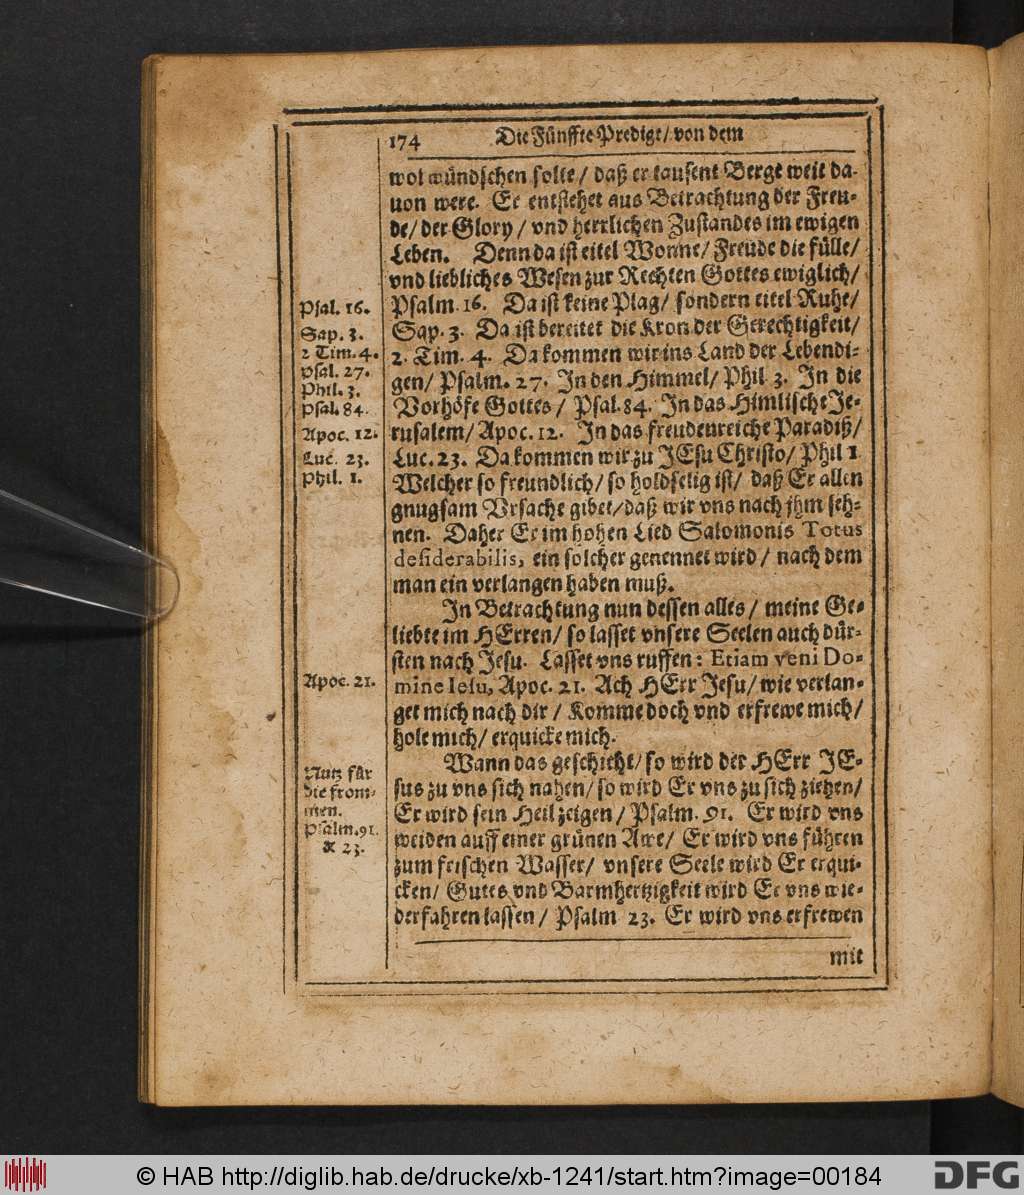 174 Die Fünffte Predigt/ von dem
wol wündschen solte/ daß er tausent Berge weit da-
uon were. Er entstehet aus Betrachtung der Freu-
de/ der Glory/ vnd herrlichen Zustandes im ewigen
Leben. Denn da ist eitel Wonne/ Freude die fülle/
vnd liebliches Wesen zur Rechten Gottes ewiglich/
Psalm. 16. Da ist keine Plag/ sondern eitel Ruhe/
Sap. 3. Da ist bereitet die Kron der Gerechtigkeit/
2. Tim. 4. Da kommen wir ins Land der Lebendi-
gen/ Psalm. 27. In den Himmel/ Phil. 3. In die
Vorhöfe Gottes/ Psal. 84. In das Himlische Je-
rusalem/ Apoc. 12. In das freudenreiche Paradiß/
Luc. 23. Da kommen wir zu JEsu Christo/ Phil 1.
Welcher so freundlich/ so holdselig ist/ daß Er allen
gnugsam Vrsache gibet/ daß wir vns nach jhm seh-
nen. Daher Er im hohen Lied Salomonis Totus
desiderabilis, ein solcher genennet wird/ nach dem
man ein verlangen haben muß.
In Betrachtung nun dessen alles/ meine Ge-
liebte im HErren/ so lasset vnsere Seelen auch dür-
sten nach Jesu. Lasset vns ruffen: Etiam veni Do-
mine Iesu, Apoc. 21. Ach HErr Jesu/ wie verlan-
get mich nach dir/ Komme doch vnd erfrewe mich/
hole mich/ erquicke mich.
Wann das geschicht/ so wird der HErr JE-
sus zu vns sich nahen/ so wird Er vns zu sich ziehen/
Er wird sein Heil zeigen/ Psalm. 91. Er wird vns
weiden auff einer grünen Awe/ Er wird vns führen
zum frischen Wasser/ vnsere Seele wird Er erqui-
cken/ Gutes vnd Barmhertzigkeit wird Er vns wie-
derfahren lassen/ Psalm 23. Er wird vns erfrewen
mit
Psal. 16.
Sap. 3.
2 Tim. 4.
Psal. 27.
Phil. 3.
Psal. 84.
Apoc. 12.
Luc. 23.
Phil. 1.
Apoc. 21.
Nutz für
die from-
men.
Psalm. 91.
& 23.
© HAB http://diglib.hab.de/drucke/xb-1241/start.htm?image=00184
DFG